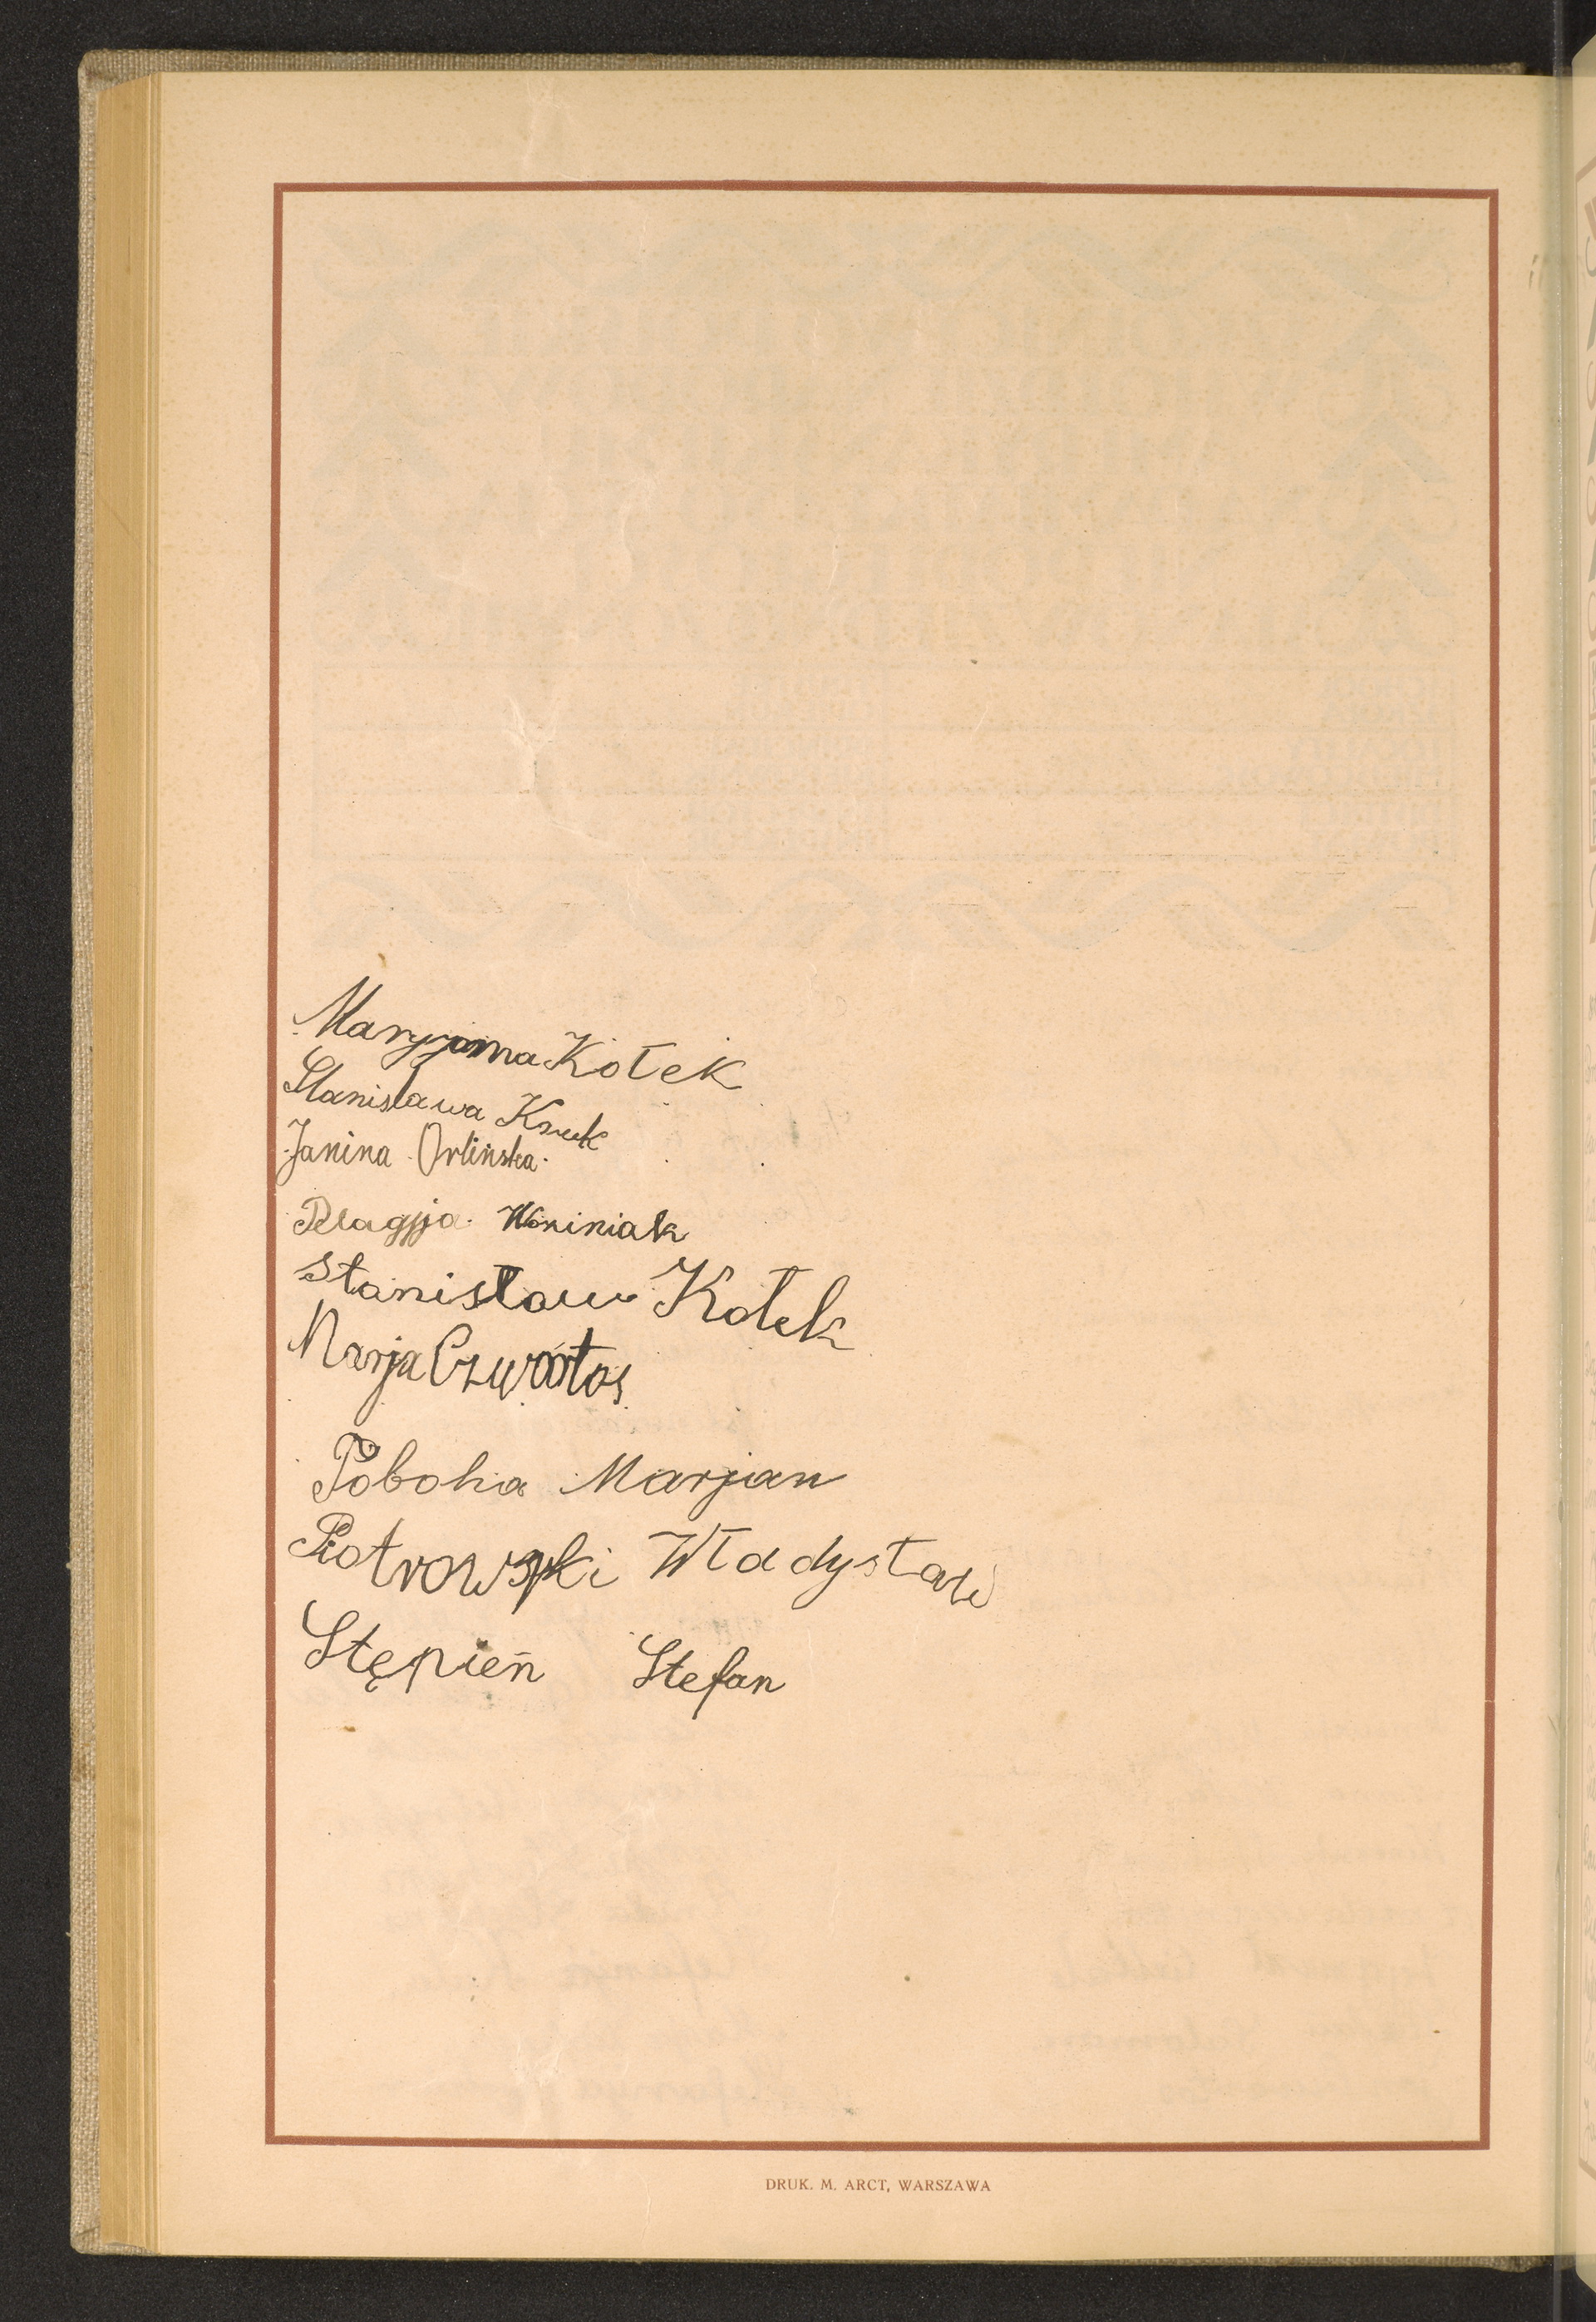 Maryjanna Kołek
Stanisława Kruk
Janina Orlińska
Pelagja Woźniniak
Stanisław Kołek
Marja Czwartos
Poboha Marjan
Piotrowski Władysław
Stępień Stefan
DRUK. M. ARCT, WARSZAWA